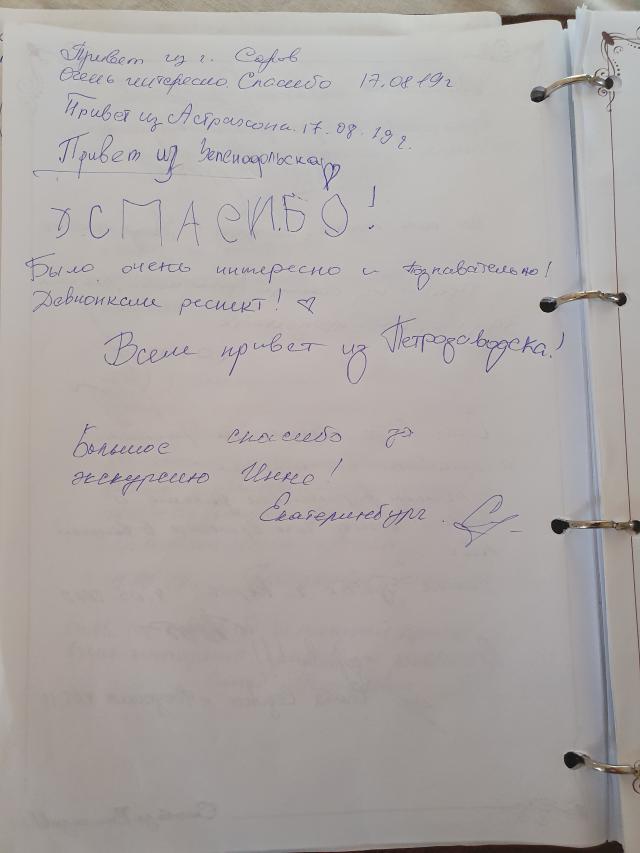 Привет из г. Саров
Очень интересно. Спасибо 17.08.19г
Привет из Астрахона. 17.08.19г.
Привет из Зеленодольска
СПАСИБО!
Было очень интересно и познавательно!
Девчонкам респект!
Всем привет из Петрозаводска!
Большое спасибо за
экскурсию Инне!
Екатеринбург.